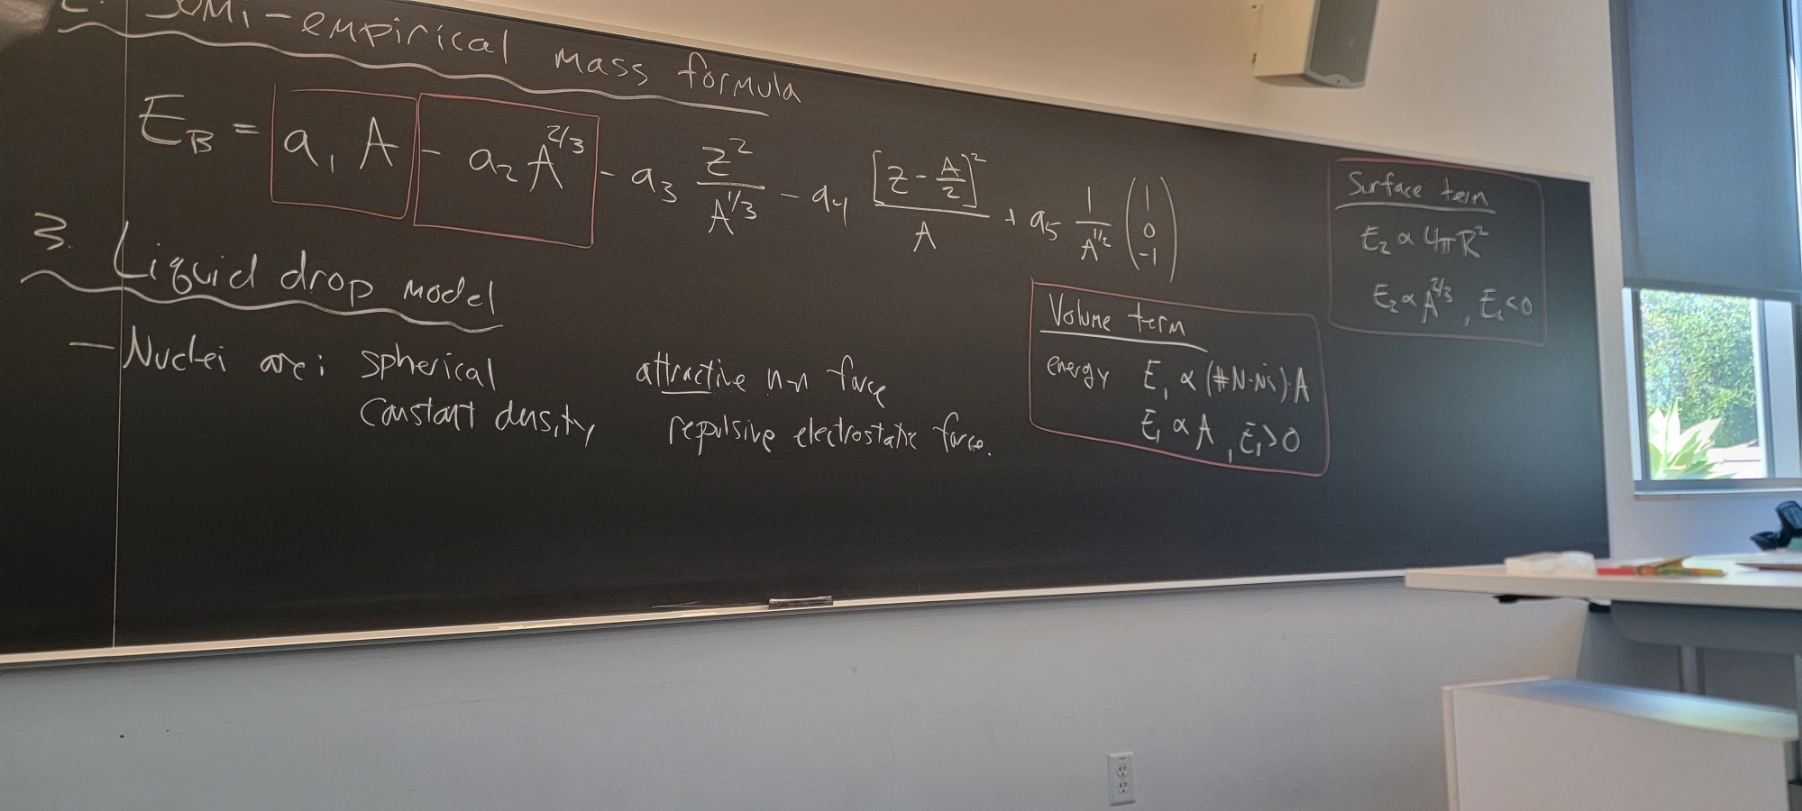 2. Semi-empirical mass formula
E_B = a₁ A - a₂ A^{2/3} - a₃ Z²/A^{1/3} - a₄ [Z - A/2]²/A + a₅ 1/A^{1/2} (1 0 -1)
3. Liquid drop model
- Nuclei are: spherical
constant density
attractive n-n force
repulsive electrostatic force.
Volume term
energy E₁ ∝ (#N-N's)·A
E₁ ∝ A, E₁>0
Surface term
E₂ ∝ 4πR²
E₂ ∝ A^{2/3}, E₂<0